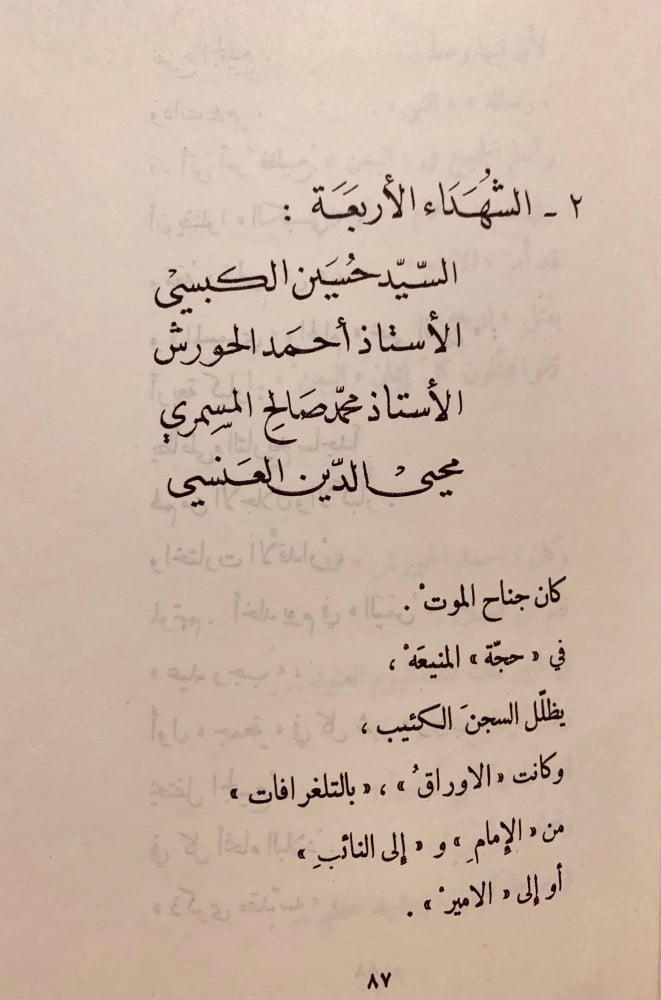 ٢ ـ الشُّهَدَاء الأربعَة :
السيّد حُسَين الكبسيْ
الأستاذ أحمَد الحورش
الأستاذ محمّد صَالح المسِمري
محيىْ الدّين العَنسيي
كان جناح الموتْ .
في « حجّة » المنيعَهْ ،
يظلّل السجنَ الكئيب ،
وكانت « الاوراقُ » ، « بالتلغرافات »
من « الإمامِ » و « إلى النائبِ »
أو إلى « الاميرْ » .
٨٧